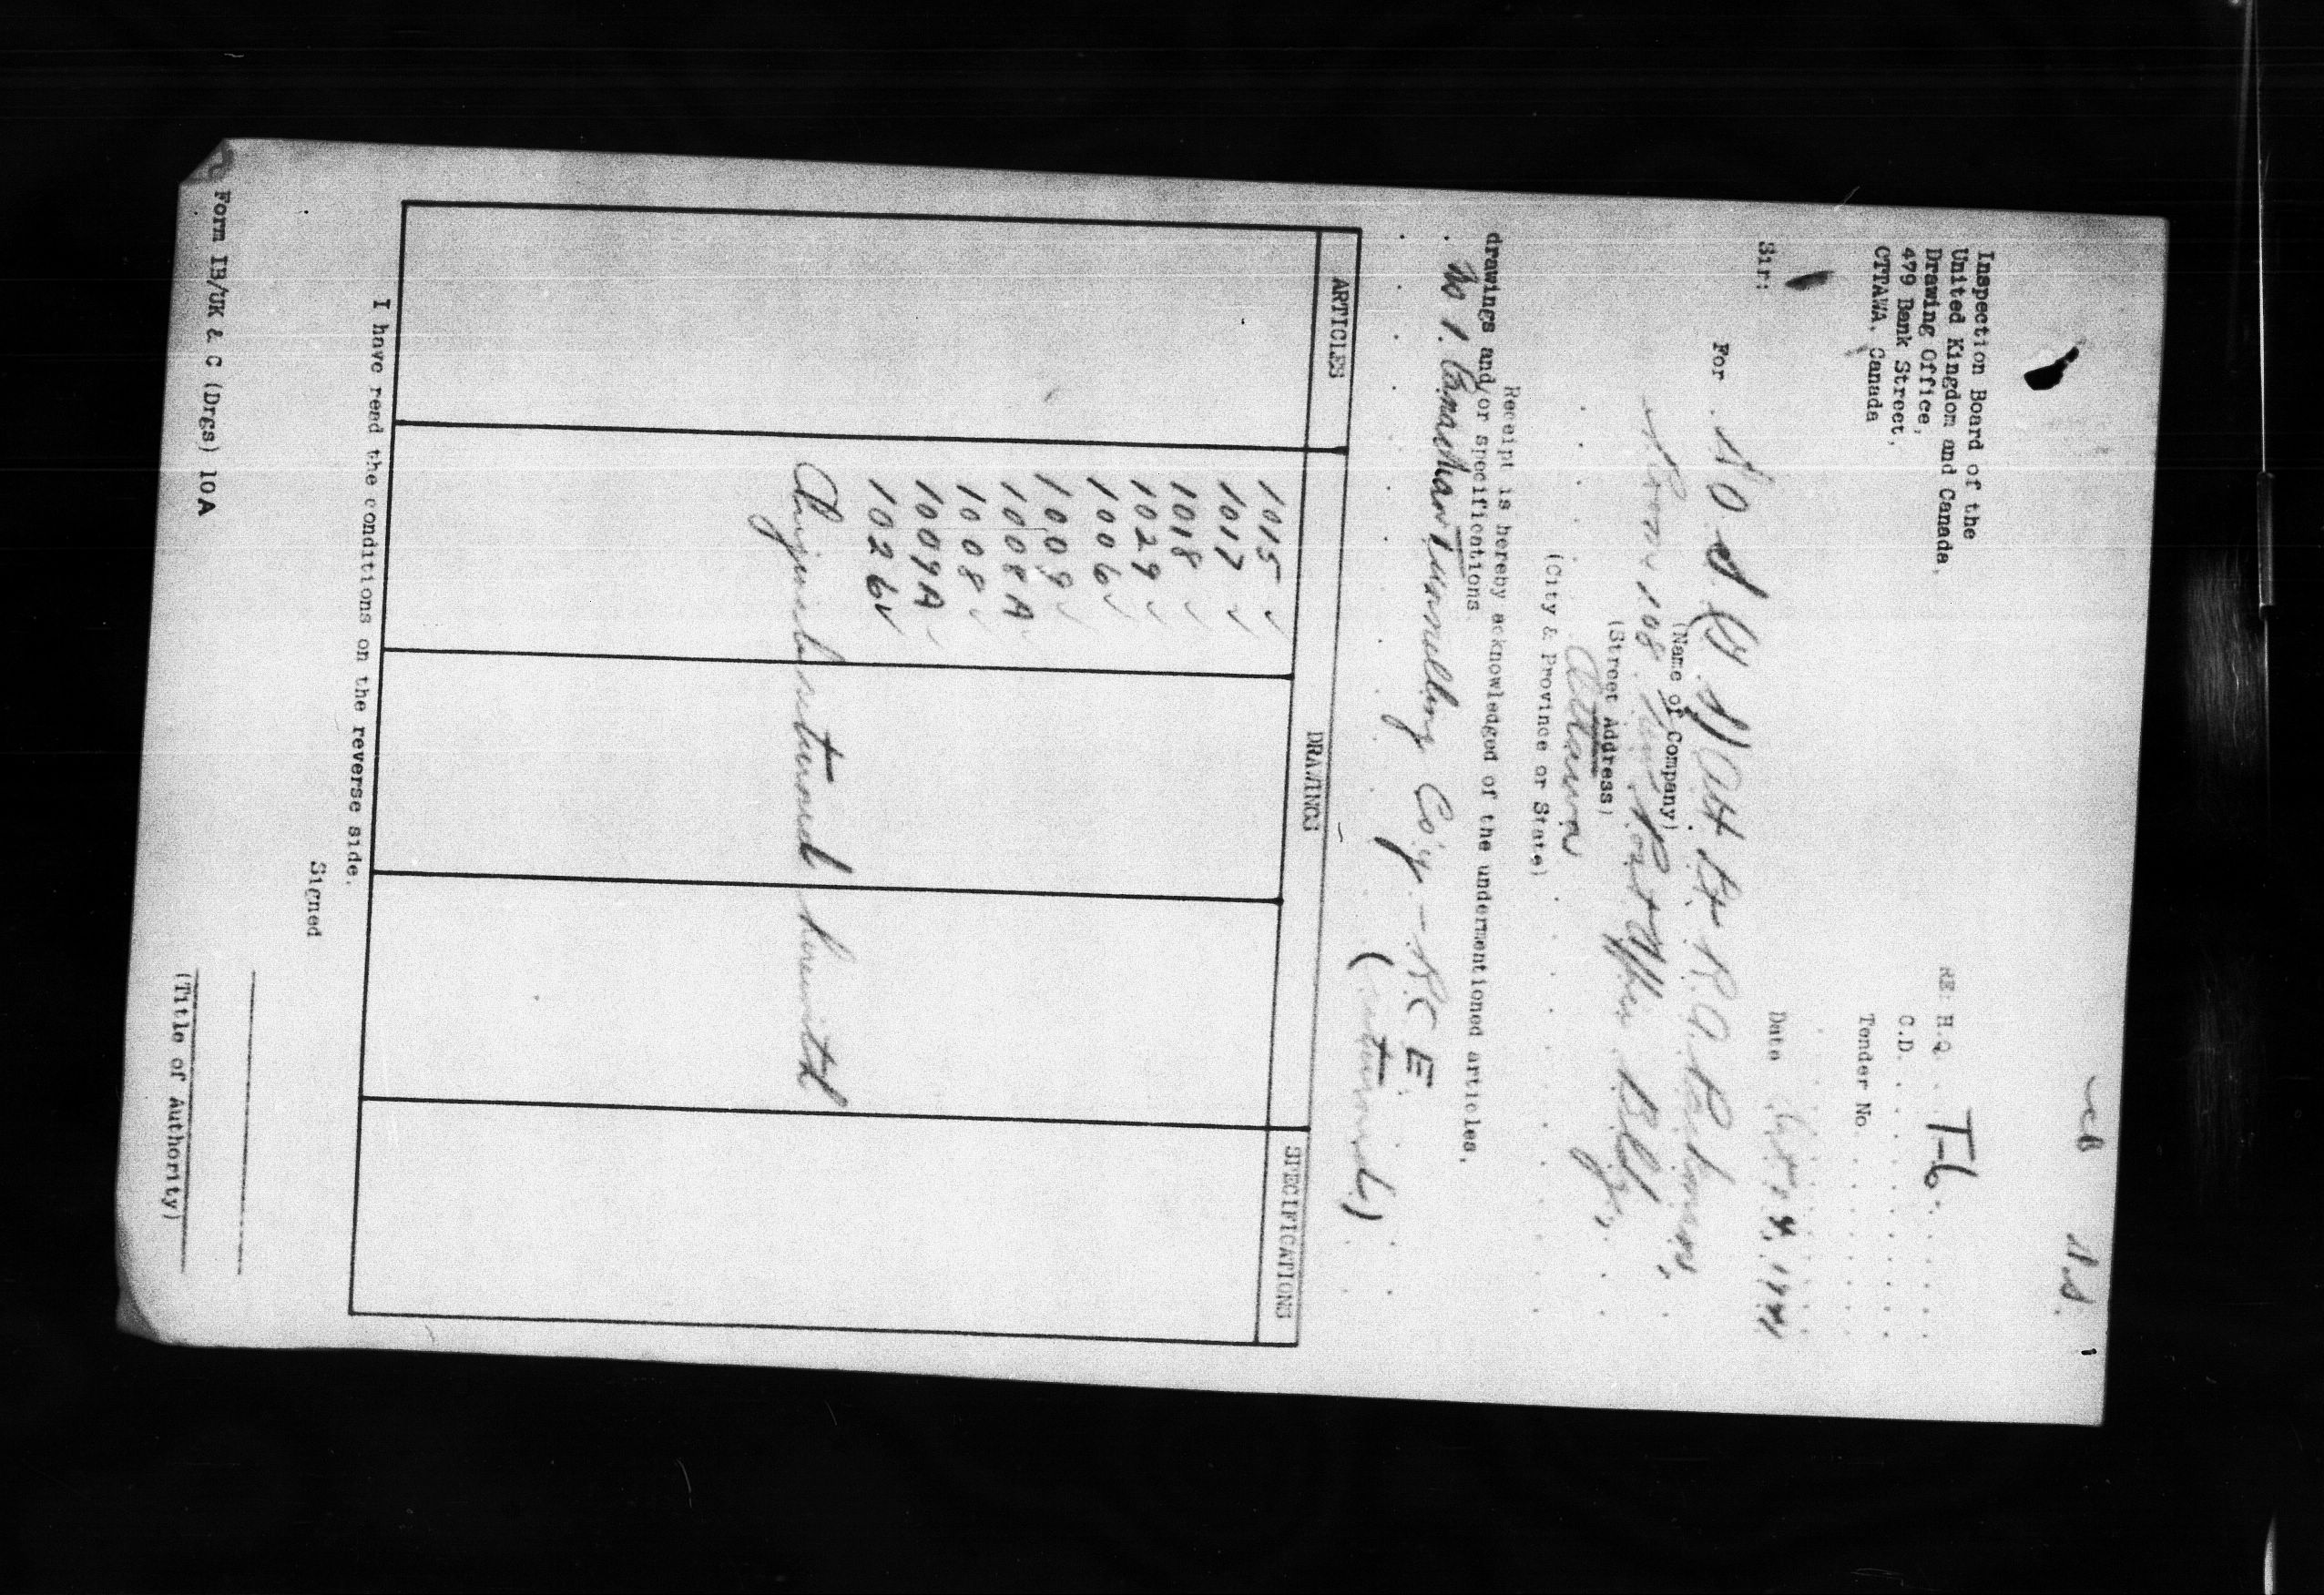 Inspection Board of the
United Kingdom and Canada,
Drawing Office,
479 Bank Street,
OTTAWA, Canada
RE: H.Q. T-6
C.D.
Tender No.
Date 4, 1941
Sir:
For
(Name of Company)
Room 108, Post Office Bldg,
(Street Address)
Ottawa
(City & Province or State)
Receipt is hereby acknowledged of the undermentioned articles,
drawings and/or specifications
No 1. Canadian Tunnelling Co'y. - RCE
(returned)
ARTICLES DRAWINGS SPECIFICATIONS
1015 ✓
1017 ✓
1018 ✓
1029 ✓
1006 ✓
1009 ✓
1008A ✓
1008 ✓
1009A ✓
1026 ✓
returned herewith
I have read the conditions on the reverse side.
Signed
(Title of Authority)
Form IB/UK & C (Drgs) 10A